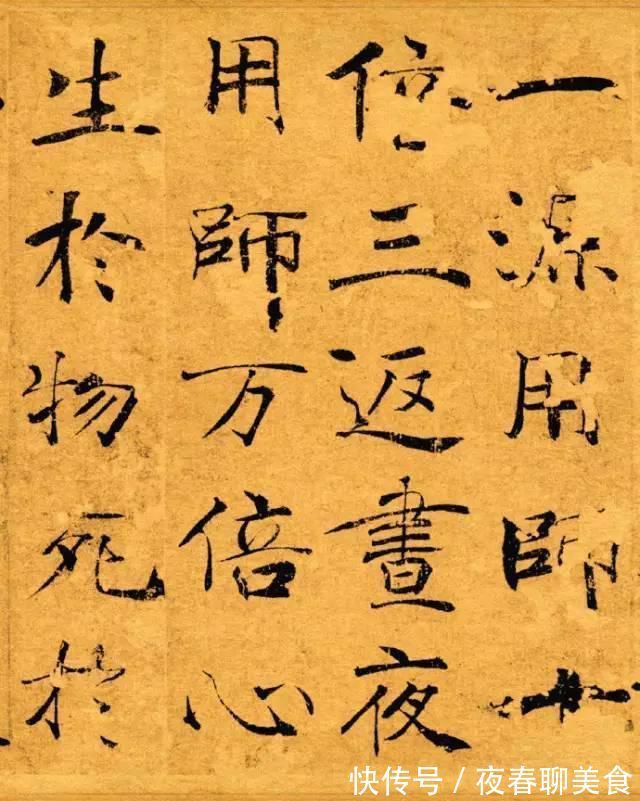 一源用師十
倍三返晝夜
用師万倍心
生於物死於
快传号 / 夜春聊美食